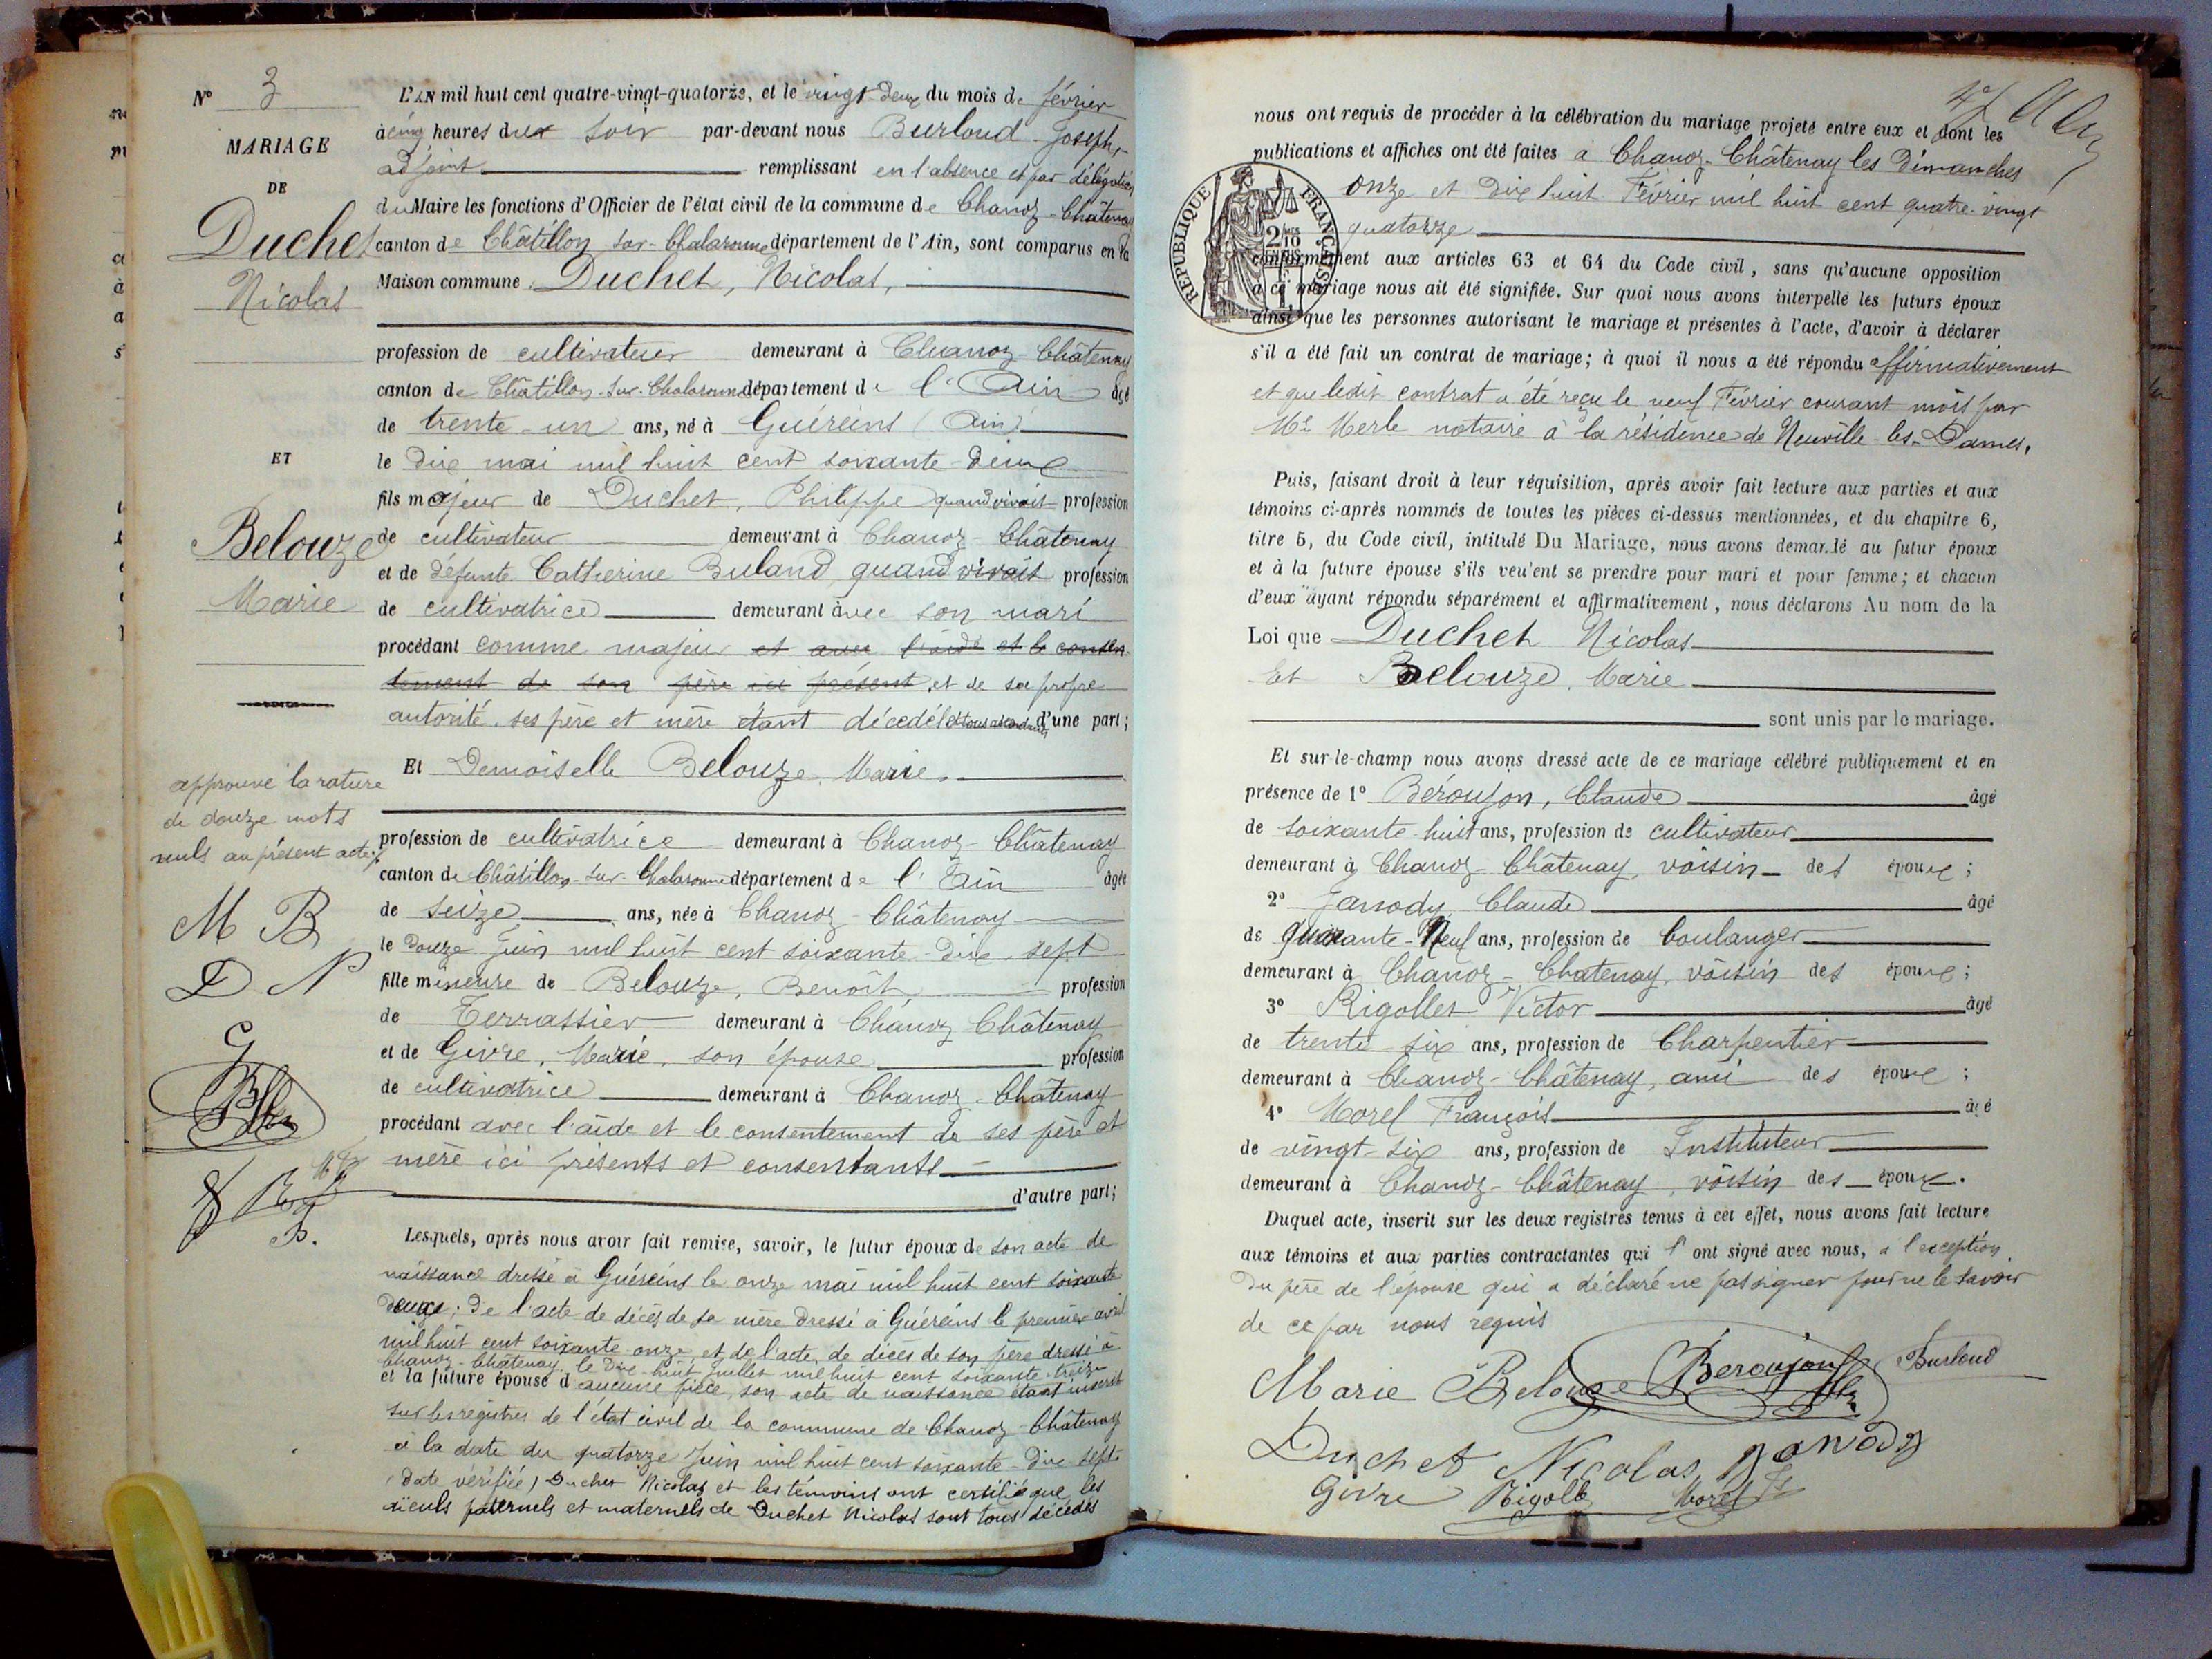 N° 3
MARIAGE
DE
Duchet
Nicolas
ET
Belouze
Marie
approuvé la rature
de douze mots
nuls au présent acte
M B
D N
G
L'AN mil huit cent quatre-vingt-quatorze, et le vingt-deux du mois de février
à cinq heures du soir par-devant nous Burloud Joseph,
adjoint remplissant en l'absence et par délégation
du Maire les fonctions d'Officier de l'état civil de la commune de Chanoz-Châtenay
canton de Châtillon-sur-Chalaronne département de l'Ain, sont comparus en la
Maison commune : Duchet, Nicolas,
profession de cultivateur demeurant à Chanoz-Châtenay
canton de Châtillon-sur-Chalaronne département de l'Ain âgé
de trente-un ans, né à Guéreins (Ain)
le dix mai mil huit cent soixante-deux
fils majeur de Duchet, Philippe quand vivait profession
de cultivateur demeurant à Chanoz-Châtenay
et de défunte Catherine Buland quand vivait profession
de cultivatrice demeurant avec son mari
procédant comme majeur et avec l'aide et le consen-
tement de son père ici présent, et de sa propre
autorité. ses père et mère étant décédés et tous ascendants d'une part;
Et Demoiselle Belouze, Marie,
profession de cultivatrice demeurant à Chanoz-Châtenay
canton de Châtillon-sur-Chalaronne département de l'Ain âgée
de seize ans, née à Chanoz-Châtenay
le douze juin mil huit cent soixante-dix-sept
fille mineure de Belouze, Benoît profession
de Terrassier demeurant à Chanoz Châtenay
et de Givre, Marie, son épouse profession
de cultivatrice demeurant à Chanoz-Châtenay
procédant avec l'aide et le consentement de ses père et
mère ici présents et consentants
d'autre part;
Lesquels, après nous avoir fait remise, savoir, le futur époux de son acte de
naissance dressé à Guéreins le onze mai mil huit cent soixante
deux; de l'acte de décès de sa mère dressé à Guéreins le premier avril
mil huit cent soixante-onze et de l'acte de décès de son père dressé à
Chanoz-Châtenay le dix-huit juillet mil huit cent soixante-treize
et la future épouse d'aucune pièce, son acte de naissance étant inscrit
sur les registres de l'état civil de la commune de Chanoz-Châtenay
à la date du quatorze juin mil huit cent soixante-dix-sept
(date vérifiée) Duchet Nicolas et les témoins ont certifié que les
aïeuls paternels et maternels de Duchet Nicolas sont tous décédés
nous ont requis de procéder à la célébration du mariage projeté entre eux et dont les
publications et affiches ont été faites à Chanoz-Châtenay les dimanches
onze et dix huit Février mil huit cent quatre-vingt
quatorze
REPUBLIQUE FRANÇAISE
conformément aux articles 63 et 64 du Code civil, sans qu'aucune opposition
à ce mariage nous ait été signifiée. Sur quoi nous avons interpellé les futurs époux
ainsi que les personnes autorisant le mariage et présentes à l'acte, d'avoir à déclarer
s'il a été fait un contrat de mariage; à quoi il nous a été répondu affirmativement
et que ledit contrat a été reçu le neuf Février courant mois par
Me Merle notaire à la résidence de Neuville-les-Dames.
Puis, faisant droit à leur réquisition, après avoir fait lecture aux parties et aux
témoins ci-après nommés de toutes les pièces ci-dessus mentionnées, et du chapitre 6,
titre 5, du Code civil, intitulé Du Mariage, nous avons demandé au futur époux
et à la future épouse s'ils veulent se prendre pour mari et pour femme; et chacun
d'eux ayant répondu séparément et affirmativement, nous déclarons Au nom de la
Loi que Duchet Nicolas
Et Belouze, Marie
sont unis par le mariage.
Et sur-le-champ nous avons dressé acte de ce mariage célébré publiquement et en
présence de 1° Béroujon, Claude âgé
de soixante-huit ans, profession de cultivateur
demeurant à Chanoz-Châtenay, voisin des époux;
2° Janody Claude âgé
de quarante-Neuf ans, profession de boulanger
demeurant à Chanoz-Chatenay, voisin des époux;
3° Rigollet Victor âgé
de trente six ans, profession de Charpentier
demeurant à Chanoz-Châtenay, ami des époux;
4° Morel François âgé
de vingt-six ans, profession de Instituteur
demeurant à Chanoz-Châtenay, voisin des époux.
Duquel acte, inscrit sur les deux registres tenus à cet effet, nous avons fait lecture
aux témoins et aux parties contractantes qui l'ont signé avec nous, à l'exception
du père de l'épouse qui a déclaré ne pas signer pour ne le savoir
de ce par nous requis
Marie Belouze Beroujon Burloud
Duchet Nicolas Janody
Givre Rigollet Morel Fs